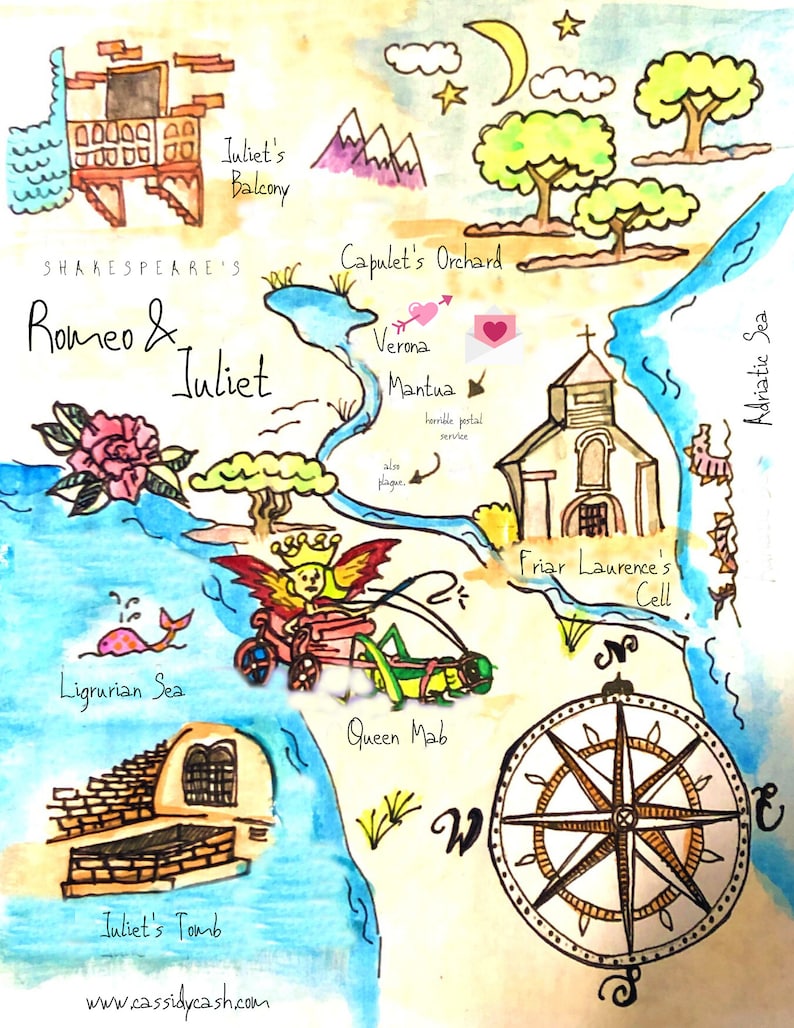 Juliet's
Balcony
SHAKESPEARE'S
Romeo &
Juliet
Capulet's Orchard
Verona
Mantua
horrible postal
service
also
plague.
Adriatic Sea
Friar Laurence's
Cell
Ligrurian Sea
Queen Mab
N
W
E
S
Juliet's Tomb
www.cassidycash.com